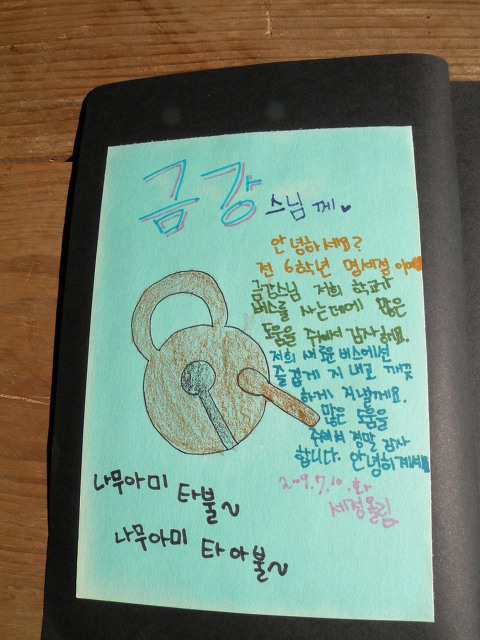 금강 스님께♥
안녕하세요?
전 6학년 명세절 이예
금강스님 저희 학교가
버스를 사는데에 많은
도움을 주셔서 감사해요.
저희 새로운 버스에선
즐겁게 지내고 깨끗
하게 지낼게요.
많은 도움을
주셔서 정말 감사
합니다. 안녕히계세요
2009.7.10.화
세정올림
나무아미 타불~
나무아미 타아불~